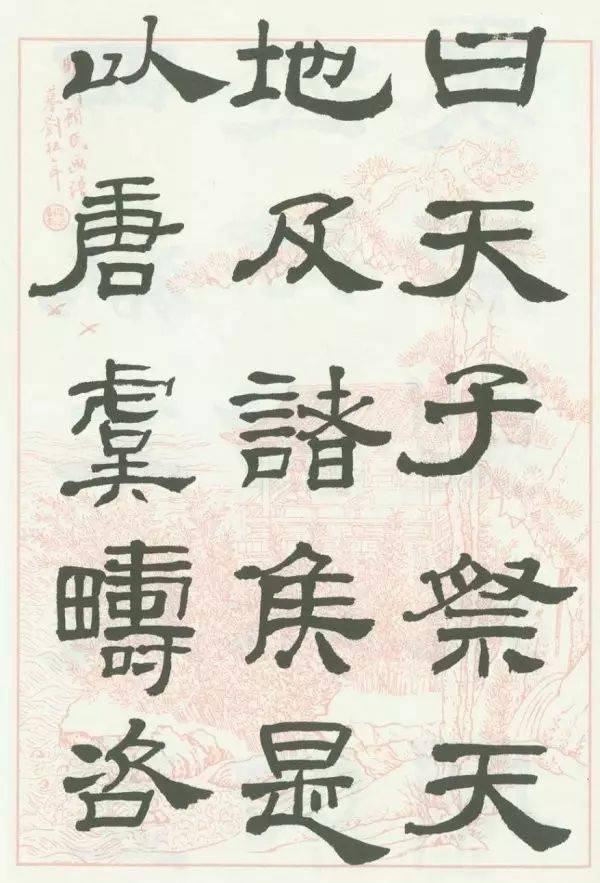 曰天子祭天
地及諸侯是
以唐虞疇咨